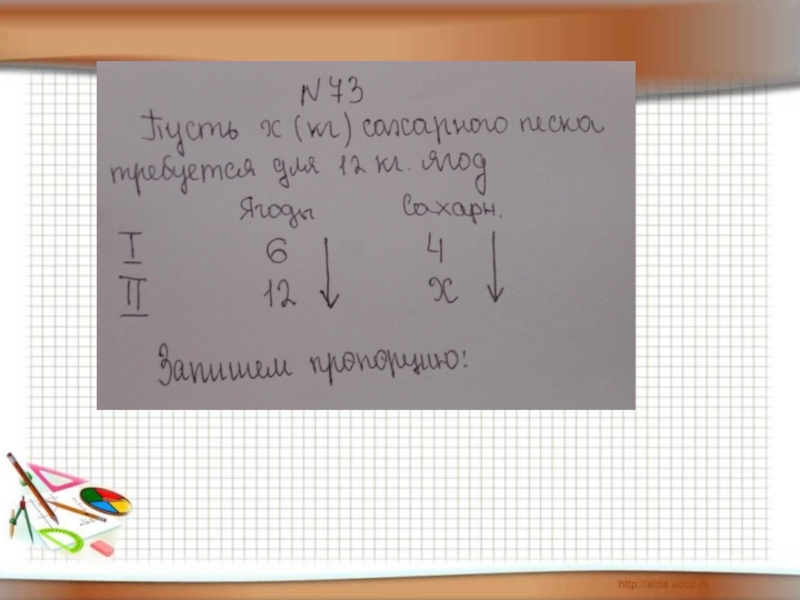 N 73
Пусть х (кг) сахарного песка
требуется для 12 кг. ягод
Ягоды Сахарн.
I 6 4
II 12 х
Запишем пропорцию:
http://aida.ucoz.ru